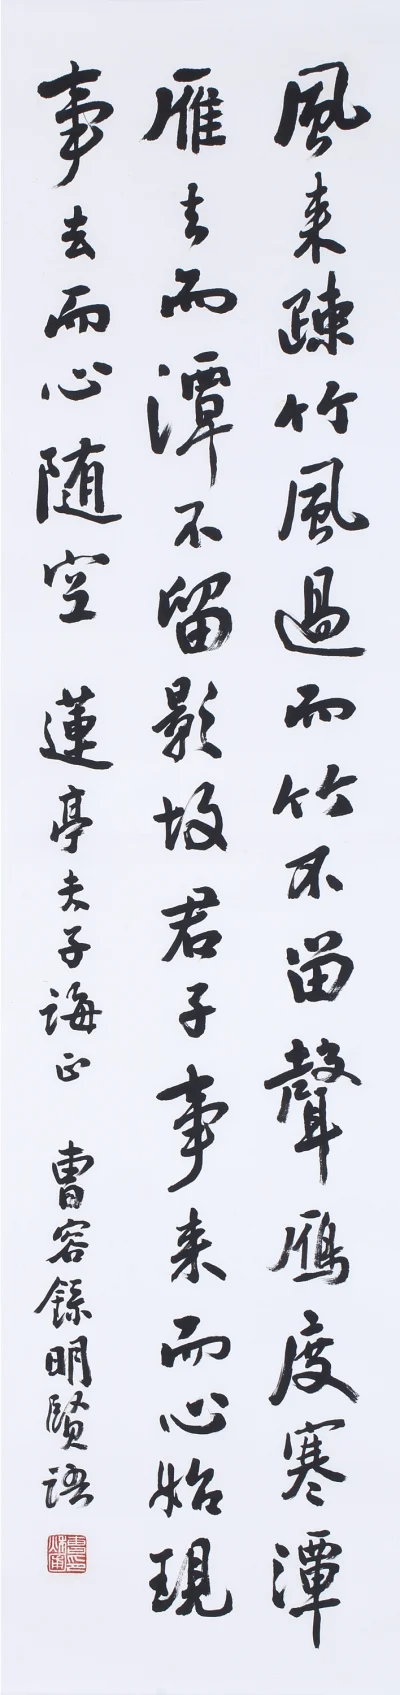 風来疎竹風過而竹不留聲鴈度寒潭
雁去而潭不留影故君子事来而心始現
事去而心随空 蓮亭夫子誨正 曹容録明賢語